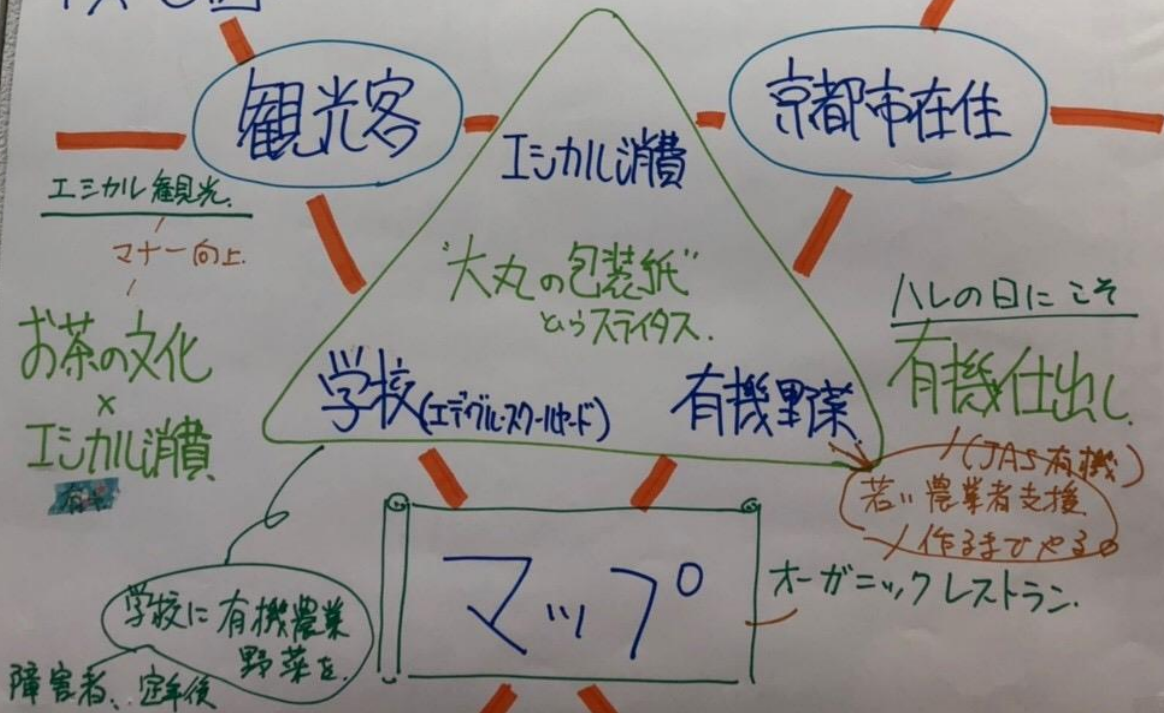 観光客
京都市在住
エシカル消費
エシカル観光.
マナー向上.
お茶の文化
×
エシカル消費
"大丸の包装紙"
というステイタス.
学校(エディブルスクールヤード)
有機野菜
ハレの日にこそ
有機仕出し.
(JAS有機)
若い農業者支援
作るまでやる。
マップ
オーガニックレストラン.
学校に有機農業
野菜を.
障害者、定年後